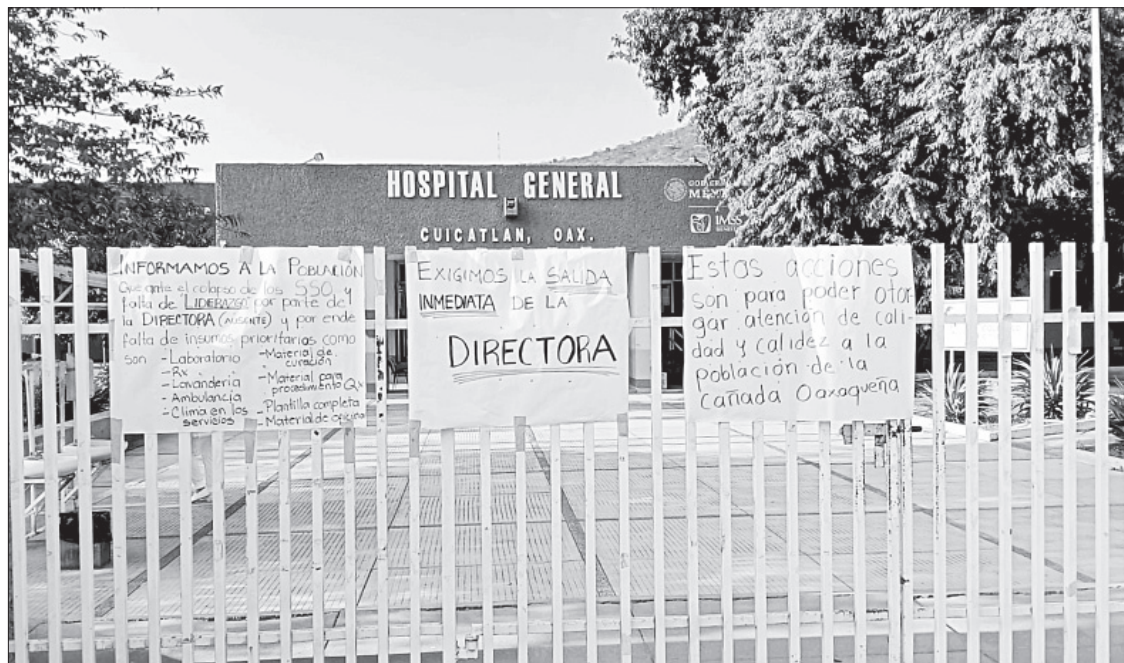 HOSPITAL GENERAL
CUICATLAN, OAX.
MÉXICO
IMSS
INFORMAMOS A LA POBLACIÓN
Que ante el colapso de los SSO, y
falta de "LIDERAZGO" por parte de
la DIRECTORA (AUSENTE) y por ende
falta de insumos prioritarios como
son - Laboratorio
- Rx
- Lavandería
- Ambulancia
- Clima en los
servicios
- Material de
curación
- Material para
procedimiento Qx
- Plantilla completa
- Material de oficina
EXIGIMOS LA SALIDA
INMEDIATA DE LA
DIRECTORA
Estas acciones
son para poder otor
gar atención de cali-
dad y calidez a la
población de la
Cañada Oaxaqueña